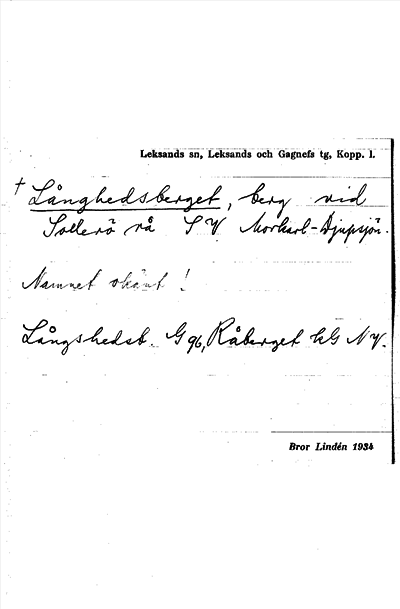 Leksands sn, Leksands och Gagnefs tg, Kopp. l.
† Långhedsberget, berg vid
Sollerö rå S V Morkarl-Djupsjön.
Namnet okänt !
Långshedsb. G 96, Råberget kG N V.
Bror Lindén 1934